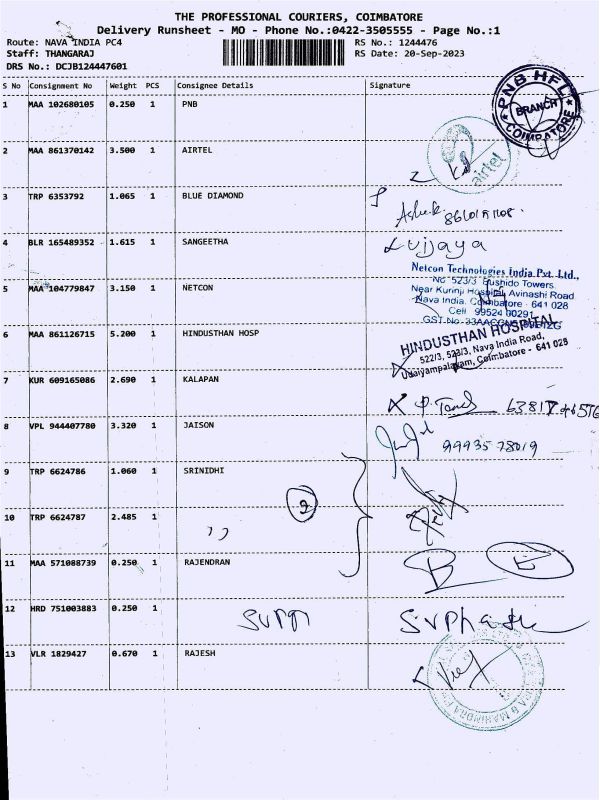 THE PROFESSIONAL COURIERS, COIMBATORE
Delivery Runsheet - MO - Phone No.:0422-3505555 - Page No.:1
Route: NAVA INDIA PC4 RS No.: 1244476
Staff: THANGARAJ RS Date: 20-Sep-2023
DRS No.: DCJB124447601
S No Consignment No Weight PCS Consignee Details Signature
1 MAA 102680105 0.250 1 PNB
PNB HFL
BRANCH
COIMBATORE
2 MAA 861370142 3.500 1 AIRTEL
airtel
3 TRP 6353792 1.065 1 BLUE DIAMOND
4 BLR 165489352 1.615 1 SANGEETHA
Vijaya
Netcon Technologies India Pvt. Ltd.,
No 523/3 Bushido Towers
Near Kurinji Hospital, Avinashi Road
5 MAA 104779847 3.150 1 NETCON Nava India. Coimbatore - 641 028
Cell 99524 00291
GST No
6 MAA 861126715 5.200 1 HINDUSTHAN HOSP HINDUSTHAN HOSPITAL
522/3, 523/3, Nava India Road,
Udaiyampalayam, Coimbatore - 641 028
7 KUR 609165086 2.690 1 KALAPAN
8 VPL 944407780 3.320 1 JAISON
9 TRP 6624786 1.060 1 SRINIDHI
2
10 TRP 6624787 2.485 1 ,,
11 MAA 571088739 0.250 1 RAJENDRAN
12 HRD 751003883 0.250 1
13 VLR 1829427 0.670 1 RAJESH